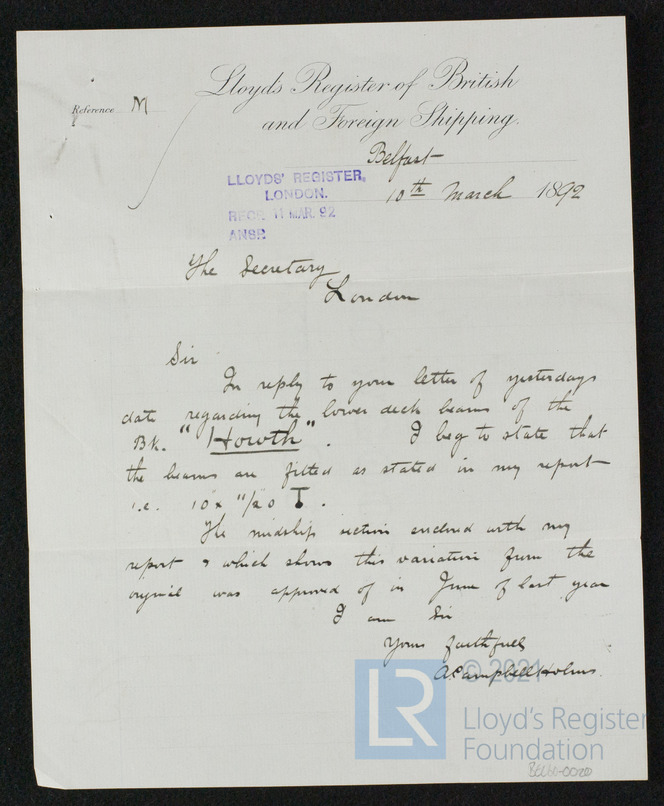 Lloyds Register of British
and Foreign Shipping.
Reference M
Belfast
10th March 1892
LLOYDS' REGISTER,
LONDON.
RECD. 11 MAR. 92
ANSD
The Secretary
London
Sir
In reply to your letter of yesterdays
date regarding the lower deck beams of the
Bk. "Howth". I beg to state that
the beams are fitted as stated in my report
i.e. 10 x 11/20 T.
The midship section enclosed with my
report & which shows this variation from the
original was approved of in June of last year
I am Sir
Yours faithfully
A. Campbell Holms.
© 2021
LR
Lloyd's Register
Foundation